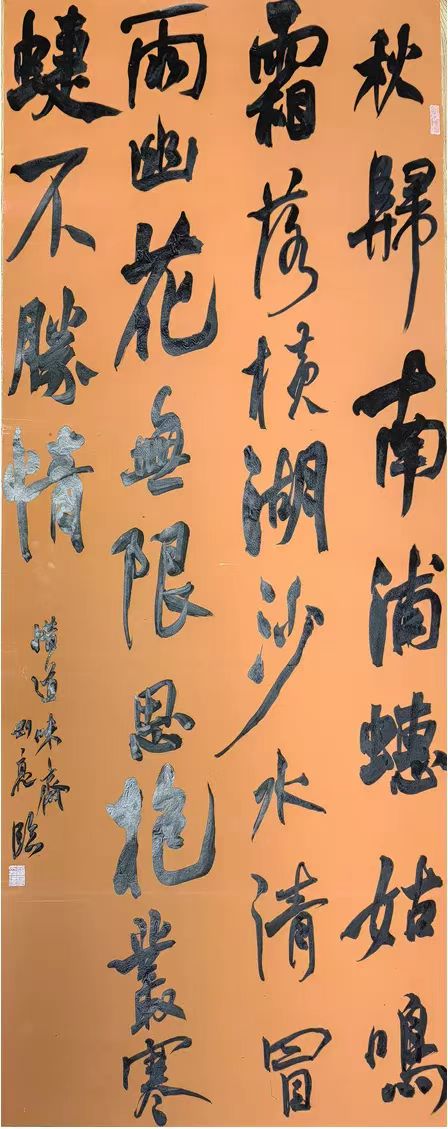 秋歸南浦蟪蛄鳴
霜落橫湖沙水清冒
雨幽花無限思抱叢寒
蜨不勝情
道味齋
亮臨